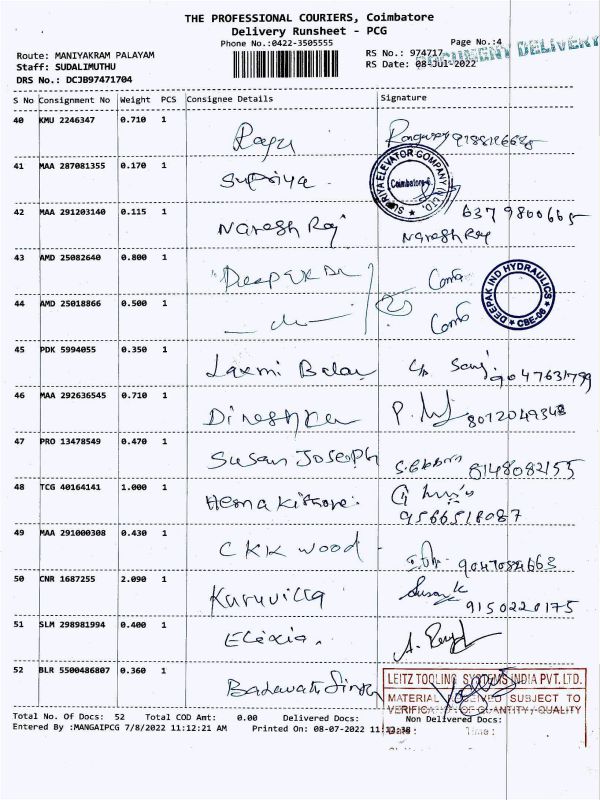 THE PROFESSIONAL COURIERS, Coimbatore
Delivery Runsheet - PCG
Phone No.:0422-3505555
Page No.:4
DOCUMENT DELIVERY
Route: MANIYAKRAM PALAYAM
RS No.: 974717
Staff: SUDALIMUTHU
RS Date: 08-Jul-2022
DRS No.: DCJB97471704
S No Consignment No Weight PCS Consignee Details Signature
40 KMU 2246347 0.710 1
41 MAA 287081355 0.170 1 Supriya
SUPRIYA ELEVATOR COMPANY Coimbatore-6
42 MAA 291203140 0.115 1 Naresh Raj
Naresh Raj
43 AMD 25082640 0.800 1
DEEPAK IND HYDRAULICS CBE-06
44 AMD 25018866 0.500 1
45 PDK 5994055 0.350 1 Laxmi
46 MAA 292636545 0.710 1
8072049348
47 PRO 13478549 0.470 1 Susan Joseph
8148082155
48 TCG 40164141 1.000 1
9566518087
49 MAA 291000308 0.430 1 CKK Wood
50 CNR 1687255 2.090 1 Kuruvilla
9150220175
51 SLM 298981994 0.400 1
52 BLR 5500486807 0.360 1
LEITZ TOOLING SYSTEMS INDIA PVT. LTD.
MATERIAL RECEIVED SUBJECT TO
VERIFICATION OF QUANTITY/QUALITY
Total No. Of Docs: 52 Total COD Amt: 0.00 Delivered Docs: Non Delivered Docs:
Entered By :MANGAIPCG 7/8/2022 11:12:21 AM Printed On: 08-07-2022
Date: Time: